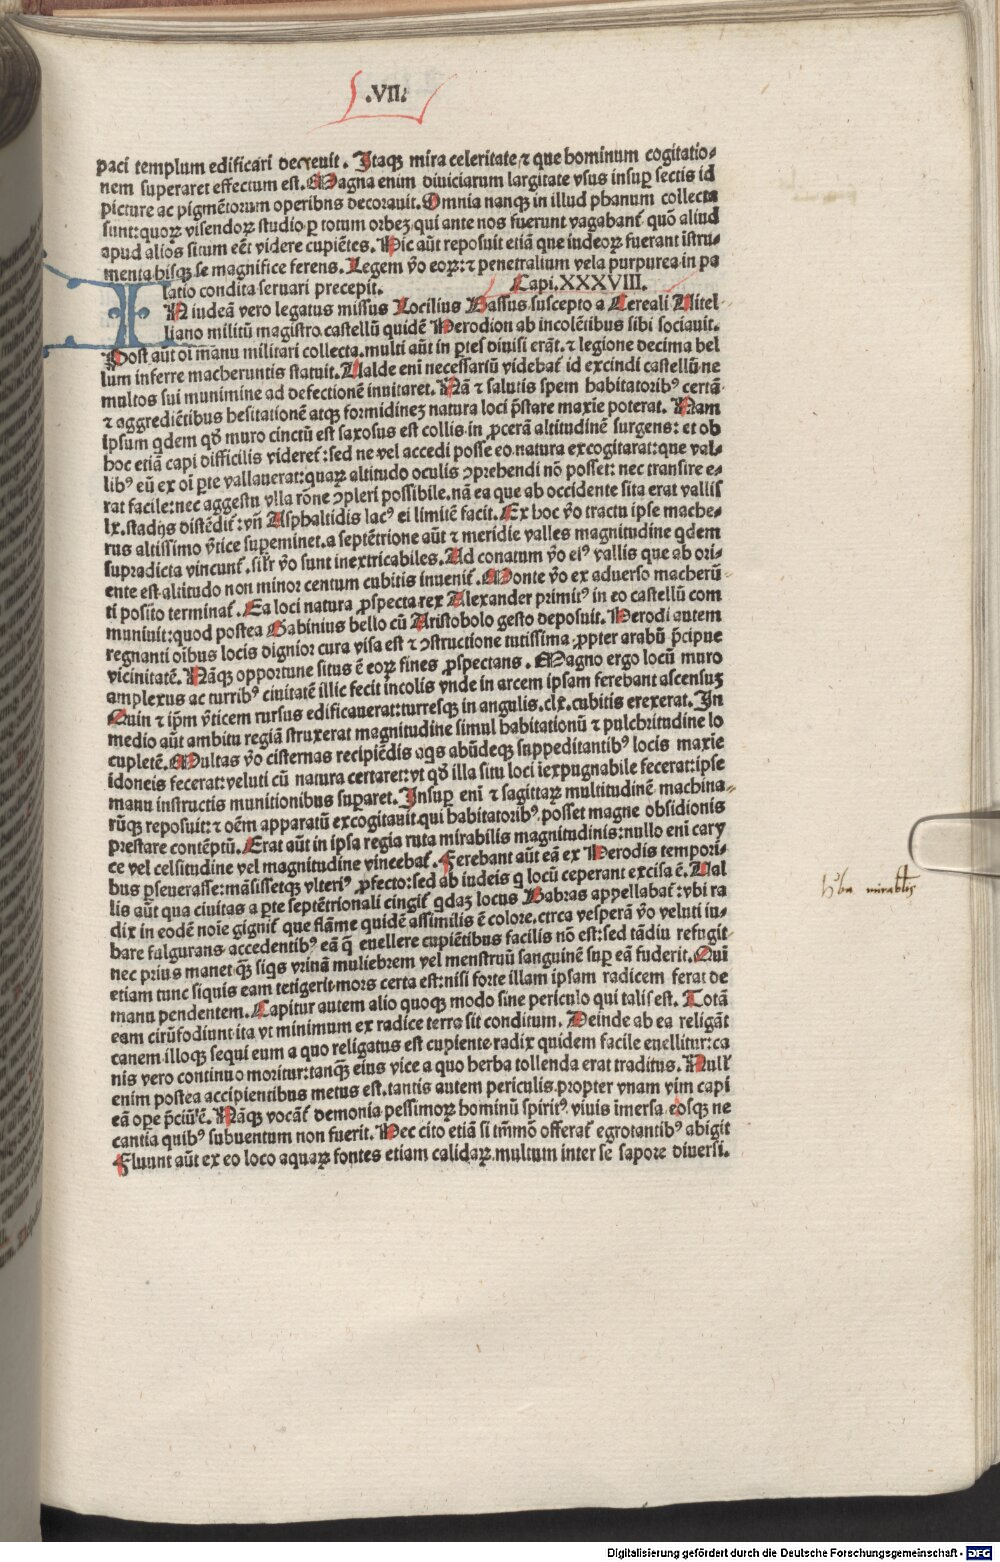 .VII.
paci templum edificari decreuit. Itaqꝫ mira celeritate ⁊ que hominum cogitatio-
nem superaret effectum est. Magna enim diuiciarum largitate vsus insuꝑ sectis id
picture ac pigmētorum operibns decorauit. Omnia nanqꝫ in illud phanum collecta
sunt: quoꝝ visendoꝝ studio ꝑ totum orbeꝫ qui ante nos fuerunt vagabant᷑ quō aliud
apud alios situm eēt videre cupiētes. Hic aūt reposuit etiā que iudeoꝝ fuerant īstru-
menta hisqꝫ se magnifice ferens. Legem v̄o eoꝝ: ⁊ penetralium vela purpurea in pa
latio condita seruari precepit. Capi. XXXVIII.
IN iudeā vero legatus missus Locilius Bassus suscepto a Cereali Vitel
liano militū magistro castellū quidē Herodion ab incolētibus sibi sociauit.
Post aūt oī manu militari collecta. multi aūt in ꝑtes diuisi erāt. ⁊ legione decima bel
lum inferre macheruntis statuit. Valde eni necessariū videbat᷑ id excindi castellū ne
multos sui munimine ad defectionē inuitaret. Nā ⁊ salutis spem habitatoribꝰ certā
⁊ aggrediētibus hesitationē atqꝫ formidineꝫ natura loci p̄stare maxīe poterat. Nam
ipsum qdem qď muro cinctū est saxosus est collis in ꝓcerā altitudinē surgens: et ob
hoc etiā capi difficilis videret᷑: sed ne vel accedi posse eo natura excogitarat: que val-
libꝰ eū ex oī ꝑte vallauerat: quaꝝ altitudo oculis ꝯprehendi nō posset: nec transire e-
rat facile: nec aggestu vlla rōne ꝯpleri possibile. nā ea que ab occidente sita erat vallis
lx. stadijs distēdit᷑: vn̄ Asphaltidis lacꝰ ei limitē facit. Ex hoc v̄o tractu ipse mache-
rus altissimo v̄tice suꝑeminet. a septētrione aūt ⁊ meridie valles magnitudine qdem
supradicta vincunt᷑. silr̄ v̄o sunt inextricabiles. Ad conatum v̄o eiꝰ vallis que ab ori-
ente est altitudo non minor centum cubitis inuenit᷑. Monte v̄o ex aduerso macherū-
ti posito terminat᷑. Ea loci natura ꝓspecta rex Alexander primitꝰ in eo castellū com
muniuit: quod postea Gabinius bello cū Aristobolo gesto deposuit. Herodi autem
regnanti oībus locis dignior cura visa est ⁊ ꝯstructione tutissima ꝓpter arabū p̄cipue
vicinitatē. Nāqꝫ opportune situs ē eoꝝ fines ꝓspectans. Magno ergo locū muro
amplexus ac turribꝰ ciuitatē illic fecit incolis vnde in arcem ipsam ferebant ascensuꝫ
Quin ⁊ ip̄m v̄ticem rursus edificauerat: turresqꝫ in angulis. clx. cubitis erexerat. In
medio aūt ambitu regiā struxerat magnitudine simul habitationū ⁊ pulchritudine lo
cupletē. Multas v̄o cisternas recipiēdis aqs abūdeqꝫ suppeditantibꝰ locis maxīe
idoneis fecerat: veluti cū natura certaret: vt qď illa situ loci īexpugnabile fecerat: ipse
manu instructis munitionibus suꝑaret. Insuꝑ enī ⁊ sagittaꝝ multitudinē machina-
rūqꝫ reposuit: ⁊ oēm apparatū excogitauit qui habitatoribꝰ posset magne obsidionis
prestare contēptū. Erat aūt in ipsa regia ruta mirabilis magnitudinis: nullo enī cary
ce vel celsitudine vel magnitudine vincebat᷑. Ferebant aūt eā ex Herodis tempori-
bus ꝑseuerasse: māsissetqꝫ vlteriꝰ ꝓfecto: sed ab iudeis q locū ceperant excisa ē. Val
lis aūt qua ciuitas a ꝑte septētrionali cingit᷑ qdaꝫ locus Babras appellabat᷑: vbi ra
dix in eodē noīe gignit᷑ que flāme quidē assimilis ē colore. circa vesperā v̄o veluti iu-
bare falgurans accedentibꝰ eā q̄ euellere cupiētibus facilis nō est: sed tādiu refugit
nec prius manet q̄ꝫ siqs vrinā muliebrem vel menstruū sanguinē suꝑ eā fuderit. Qui
etiam tunc siquis eam tetigerit mors certa est: nisi forte illam ipsam radicem ferat de
manu pendentem. Capitur autem alio quoqꝫ modo sine periculo qui talis est. Totā
eam cirūfodiunt ita vt minimum ex radice terra sit conditum. Deinde ab ea religāt
canem illoqꝫ sequi eum a quo religatus est cupiente radix quidem facile euellitur: ca
nis vero continuo moritur: tanq̄ꝫ eius vice a quo herba tollenda erat traditus. Null᷑
enim postea accipientibus metus est. tantis autem periculis propter vnam vim capi
eā oꝑe p̄ciū ē. Nāqꝫ vocāt᷑ demonia pessimoꝝ hominū spiritꝰ viuis īmersa eosqꝫ ne
cantia quibꝰ subuentum non fuerit. Hec cito etiā si tm̄mō offerat᷑ egrotantibꝰ abigit
Fluunt aūt ex eo loco aquaꝝ fontes etiam calidaꝝ. multum inter se sapore diuersi.
Digitalisierung gefördert durch die Deutsche Forschungsgemeinschaft - DFG